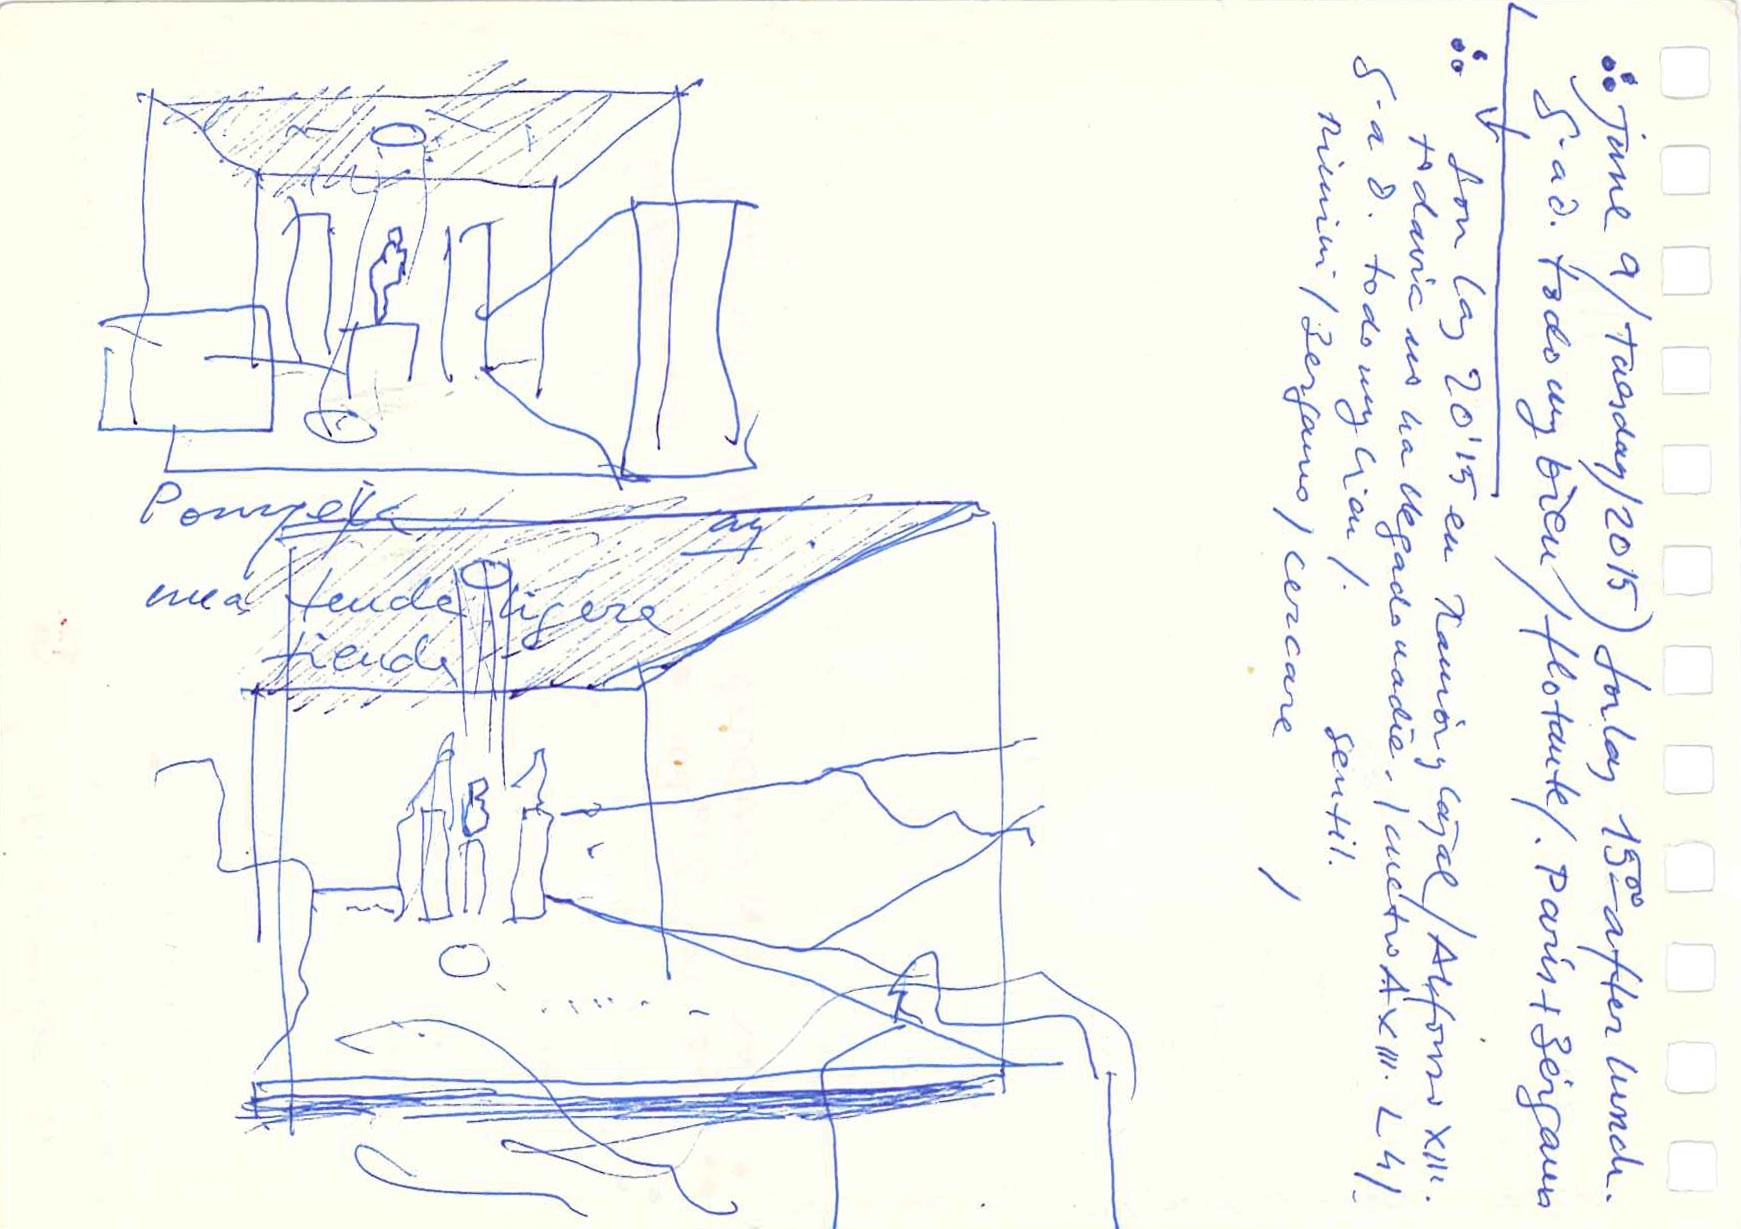 June 9/Tuesday/2015) son las 15⁰⁰ after lunch.
S-a D. todo muy bien/flotante/. Paris + Bérgamo
son las 20'15 en Ramón y Cajal/Alfonso XIII.
todavía no ha llegado nadie. / metro A XIII. L4/.
S-a D. todo muy bien/. sentil.
Rimini/Bergamo, cercare
Pompeya
una tenda ligera
tienda